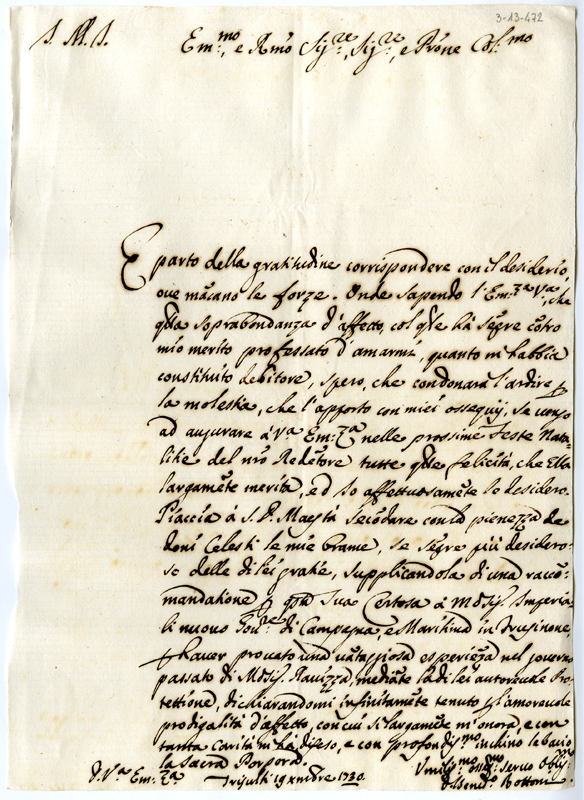 3-13-472
J. M. J.
Em.mo, e Rmo Sig.re, Sig.re, e Prone Col.mo
È parto della gratitudine corrispondere con il desiderio,
oue mācano le forze. Onde sapendo l'Em.za V.a, che
q̄lla soprabondanza d'affetto, col q̄le hà sēpre cōtro
mio merito professato d'amarmi, quanto m'habbia
constituito debitore, spero, che condonarà l'ardire p
la molestia, che l'apporto con miei ossequij, se uengo
ad augurare à V.a Em.za nelle prossime Feste Nata
litie del nr̄o Redētore tutte q̄lle felicità, che Ella
largamēte merita, ed Io affettuosamēte le desidero.
Piaccia à S. D. Maestà secōdare con la pienezza de
doni Celesti le mie brame, se sēpre più desidero-
so delle di lei gratie, supplicandola di una racco-
mandatione p q̄sta sua Certosa à Mōsig. Imperia-
li nuouo Gou.re di Campagna, e Marittima in Frusinone,
p hauer prouato una uātaggiosa esperiēza nel gouerno
passato di Mōsig. Rauizza, mediāte la di lei autoreuole Pro-
tettione, dichiarandomi infinitamēte tenuto p l'amoreuole
prodigalità d'affetto, con cui sì largamēte m'onora, e con
tanta carità m'ha difeso, e con profondiss.mo inchino le bacio
la Sacra Porpora.
D. V.a Em.za Trisulti 19 xmbre 1730.
Vmiliss.mo Seruo Oblig.mo
Bottoni